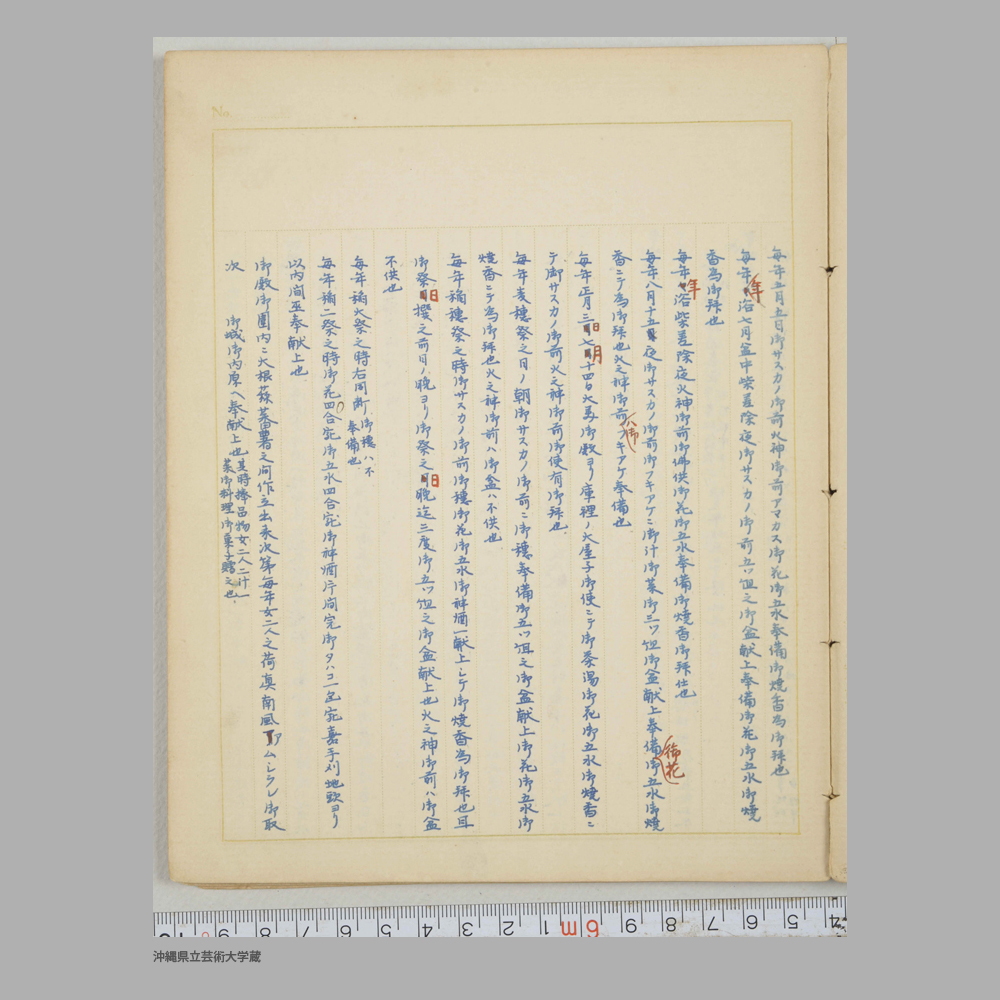 毎年五月五日御サスカノ御前火神御前アマカス御花御五水奉備御焼香為御拝也
毎年浴七月盆中柴差除夜御サスカノ御前五ツ組之御盆献上奉備御花御五水御焼
年
香為御拝也
毎年浴柴差除夜火神御前御備供御花御五水奉備御焼香御拝仕也
年
毎年八月十五夜御サスカノ御前御フキアケニ御汁御菜御三ツ組御盆献上奉備御五水御焼
御花
香ニテ為御拝也火之神御前フキアケ奉備也
八御
毎年正月三日七月十四日大美御殿ヨリ庫裡ノ大屋子御使ニテ御茶湯御花御五水御焼香ニ
テ御サスカノ御前火之神御前御使有御拝也
毎年麦穂祭之日ノ朝御サスカノ御前ニ御穂奉備御五ツ組之御盆献上御花御五水御
焼香ニテ為御拝也火之神御前ハ御盆ハ不供也
毎年稲穂祭之時御サスカノ御前御穂御花御五水御神酒一献上シテ御焼香為御拝也且
御祭日撰之前日ノ晩ヨリ御祭之日晩迄三度御五ツ組之御盆献上也火之神御前ハ御盆
不供也
毎年稲大祭之時右同断 御穂ハ不奉備也
毎年稲二祭之時御花四合完御五水四合完御神酒片同完御タハコ一包完喜手刈地頭ヨリ
以内間巫奉献上也
御殿御圃内ニ大根菜蕃署之間作立出来次第毎年女二人之荷真南風御ムシラレ御取
次 御城御内原ヘ奉献上也 其時捧品物女二人ニ汁一菜御料理御菓子賜之也
No.
沖縄県立芸術大学蔵